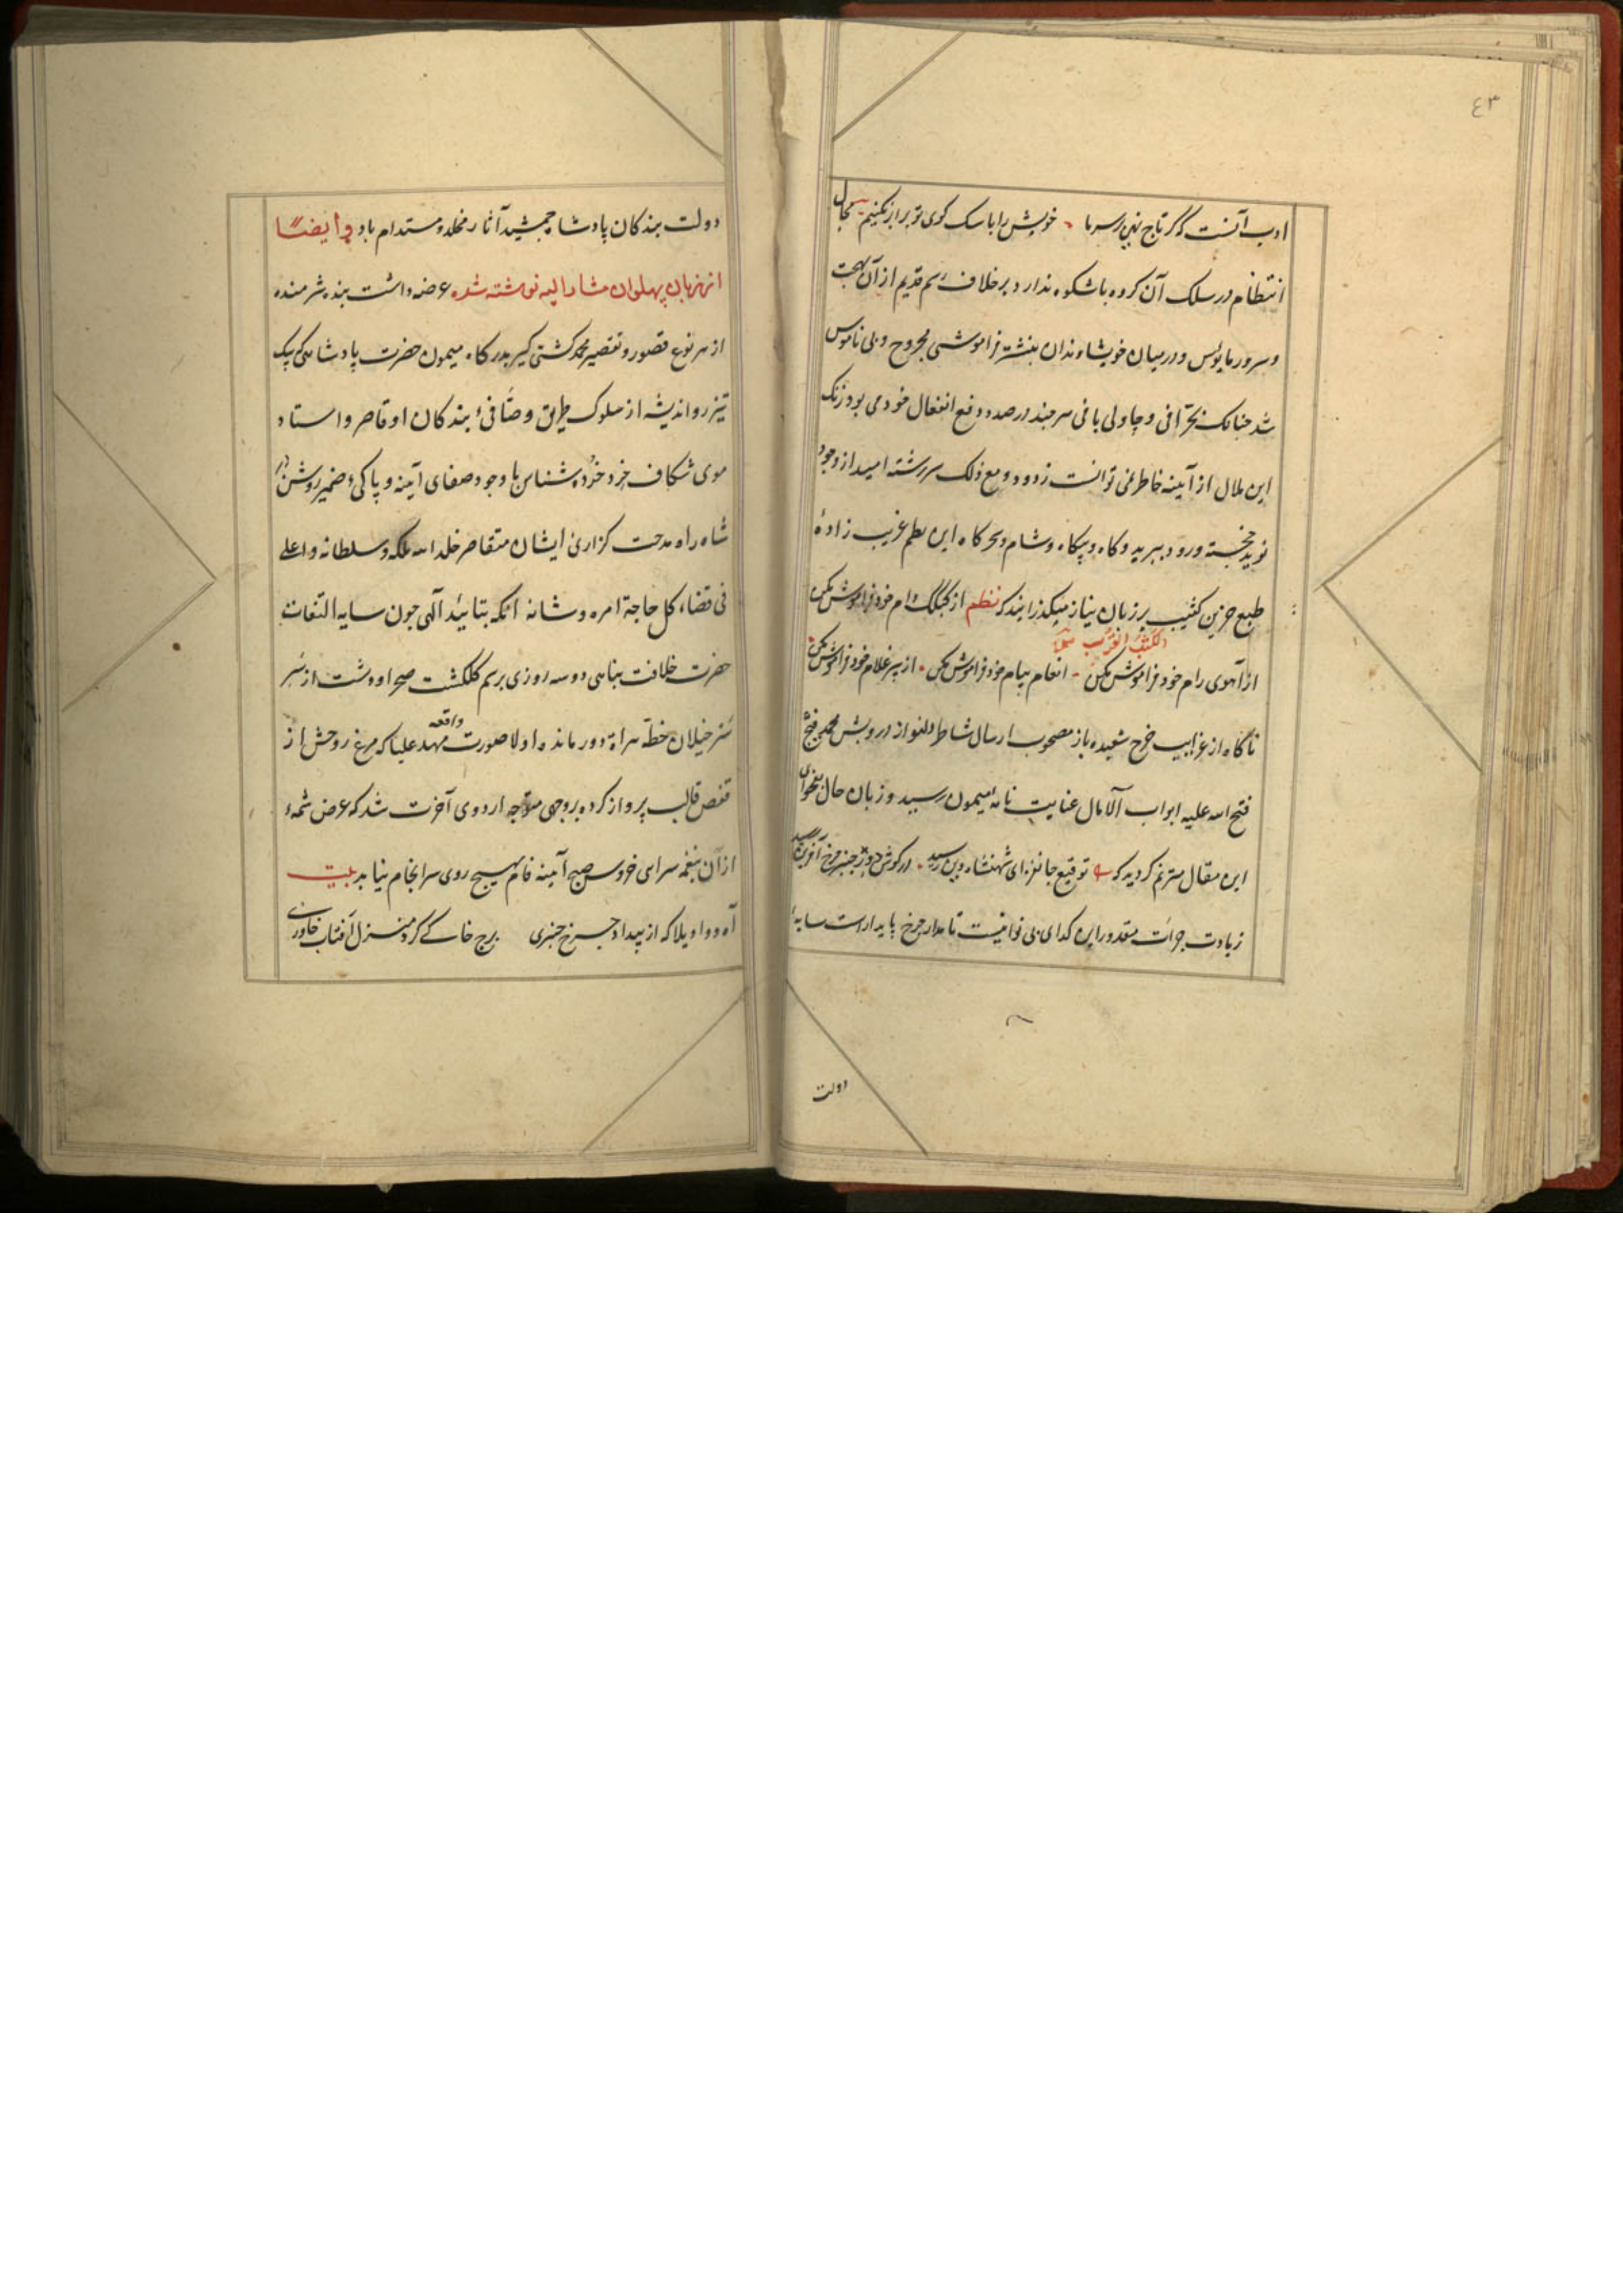 ٤٣
ادب آنست که گر تاج نهی بر سر ما خویش را با سک کوی تو برابر نکنیم مجال
انتظام در سلک آن کروه باشکوه ندارد بر خلاف رسم قدیم از آن بهجت
و سرور مایوس و در میان خویشاوندان بنشتر فراموشی مجروح و بی ناموس
شد چنانک بحرافی و چاولی بافی سر چند در صدد دفع انفعال خود می بود زنک
این ملال از آیینه خاطر نمی توانست زدود و مع ذلک سررشته امید از وجود
نوید خجسته ورود ببرید و کاه و بیکاه و شام و سحرکاه این نظم غریب زاده
طبع حزین کئیب بر زبان نیاز میکذرانید که نظم از کبک رام خود فراموش مکن
از آهوی رام خود فراموش مکن انعام پیام خود فراموش مکن از پیر غلام خود فراموش مکن
ناکاه از غرایب چرخ شعبده باز مصحوب ارسال شاطر دلنواز درویش محمد فتح
فتح الله علیه ابواب الآمال عنایت نامه میمون رسید و زبان حال بفحوای
این مقال مترنم کردید که توقیع جانفزای شهنشاه دین رسید در کوش
زیادت جرات مقدور این کدای بی نوا نیست تا مدار چرخ پایدارست سایهٔ
دولت
دولت بندکان پادشاه جمشید آثار مخلد و مستدام باد و ایضًا
از زبان پهلوان مشار الیه نوشته شده عرضه داشت بنده شرمنده
از هر نوع قصور و تقصیر محمد کشتی کیر بدرکاه میمون حضرت پادشاهی که پیک
تیزرو اندیشه از سلوک طریق وصّافیٔ بندکان او قاصر و استاد
موی شکاف خرد خرده شناس با وجود صفای آینه و پاکیٔ ضمیر روشن از
شاه راه مدحت کزاری ایشان متقاصر خلد الله ملکه و سلطانه و اعلی
فی قضاء کل حاجة امره و شانه انکه بتائید آلهی چون سایه التفات
حضرت خلافت پناهی دو سه روزی برسم کلکشت صحرا و دشت از سر
خیلان خطّه هراة دور مانده اولا صورت واقعه مهد علیا که مرغ روحش از
قفص قالب پرواز کرده بروجهی متوجه اردوی آخرت شد که عرض شمهٔ
از آن بنغمه سرایی خروس صبح آینه فام بهیچ روی سرانجام نیابد بیت
آه و واویلا که از بیداد چرخ چنبری برج خاکی کرد منزل آفتاب خاوری